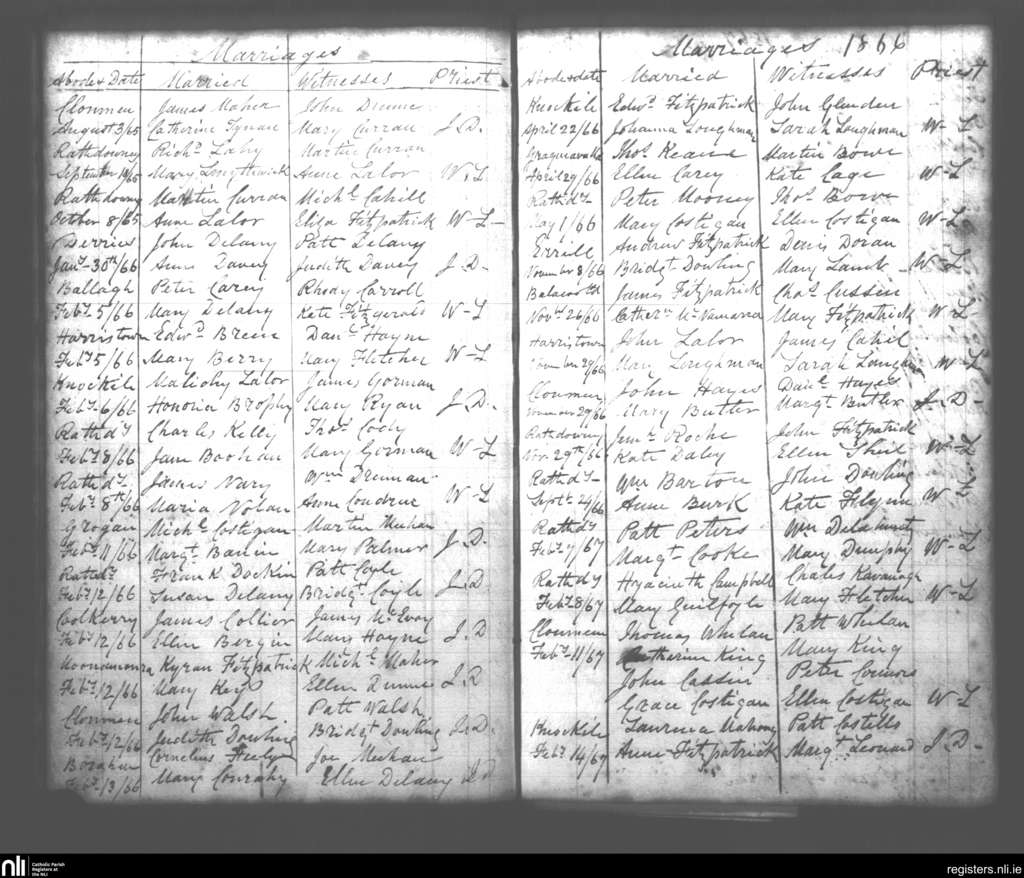 Marriages
Abode & Date Married Witnesses Priest
Clonmen James Maher John Dunne
August 3/65 Catherine Tynan Mary Curran J.D.
Rathdowney Richd Lahy Martin Curran
September /65 Mary Anne Lalor W.L
Rathdowny Martin Curran Michl Cahill
October 8/65 Anne Lalor Eliza Fitzpatrick W-L-
Derries John Delany Patt Delany
Jany-30th/66 Anne Davey Judith Davey J.D-
Ballagh Peter Carey Rhody Carroll
Feby 5/66 Mary Delany Kate Fitzgerald W-L
Harristown Edwd Breen Danl Hayne
Feby 5/66 Mary Berry Mary Fletcher W-L
Knockile Malichy Lalor James Gorman
Feby 6/66 Honoria Brophy Mary Ryan J.D.
Rathdy Charles Kelly Thos Cody
Feby 8/66 Jane Boohan Mary Gorman W-L
Rathdy James Nary Wm Drennan
Feby 8th/66 Maria Nolan Anne W-L
Grogan Michl Costigan Martin
Feby 11/66 Margt Mary Palmer J.D.
Rathdy Frank Dockin Patt Coyle
Feby 12/66 Susan Delany Bridgt Coyle J.D
Coolkerry James Collier James McEvoy
Feby 12/66 Ellen Bergin Mary Hoyne J.D
Kyran Fitzpatrick Michl Maher
Feby 12/66 Mary Keys Ellen Dunne J.D
Clonmen John Walsh. Patt Walsh
Feby 12/66 Judith Dowling Bridgt Dowling J.D.
Cornelius Joe Meehan
Feby 13/66 Mary Conrahy Ellen Delany J.D
Marriages 1866
Abode & date Married Witnesses Priest
Knockile Edwd Fitzpatrick John Glendon
April 22/66 Johanna Loughman Sarah Loughman W-L
Thos Keane Martin Bowe
April 29/66 Ellen Carey Kate Cage W-L
Rathdy Peter Mooney Thos Bowe
May 1/66 Mary Costigan Ellen Costigan W-L
Errill Andrew Fitzpatrick Denis Doran
November 8/66 Bridgt Dowling Mary Lamb W-L
James Fitzpatrick Chas Cussen
Novr 26/66 Cathern McNamara Mary Fitzpatrick W-L
Harristown John Lalor James Cahil
November 29/66 Mary Loughman Sarah Loughman W-L
Clonmen John Hayes Danl Hayes
November 29/66 Mary Butler Margt Butler J-D-
Rathdowny Roche John Fitzpatrick
Nov. 29th/66 Kate Daley Ellen Sheil W-L
Rathdy- Wm Barton John Dowling
Septr 24/66 Anne Burk Kate W-L
Rathdy Patt Peters Wm Delahunt
Feby 7/67 Margt Cooke Mary Dunphy W-L
Rathdy Hyacinth Campbell Charles Kavanagh
Feby 8/67 Mary Guilfoyle Mary Fletcher W-L
Clonmeen Thomas Whelan Patt Whelan
Feby-11/67 Catherine King Mary King
John Cassin Peter Connors
Grace Costigan Ellen Costigan W-L
Knockile Laurence Mahony Patt Costello
Feby 14/67 Anne Fitzpatrick Margt Leonard J-D-
nli Catholic Parish Registers at the NLI
registers.nli.ie